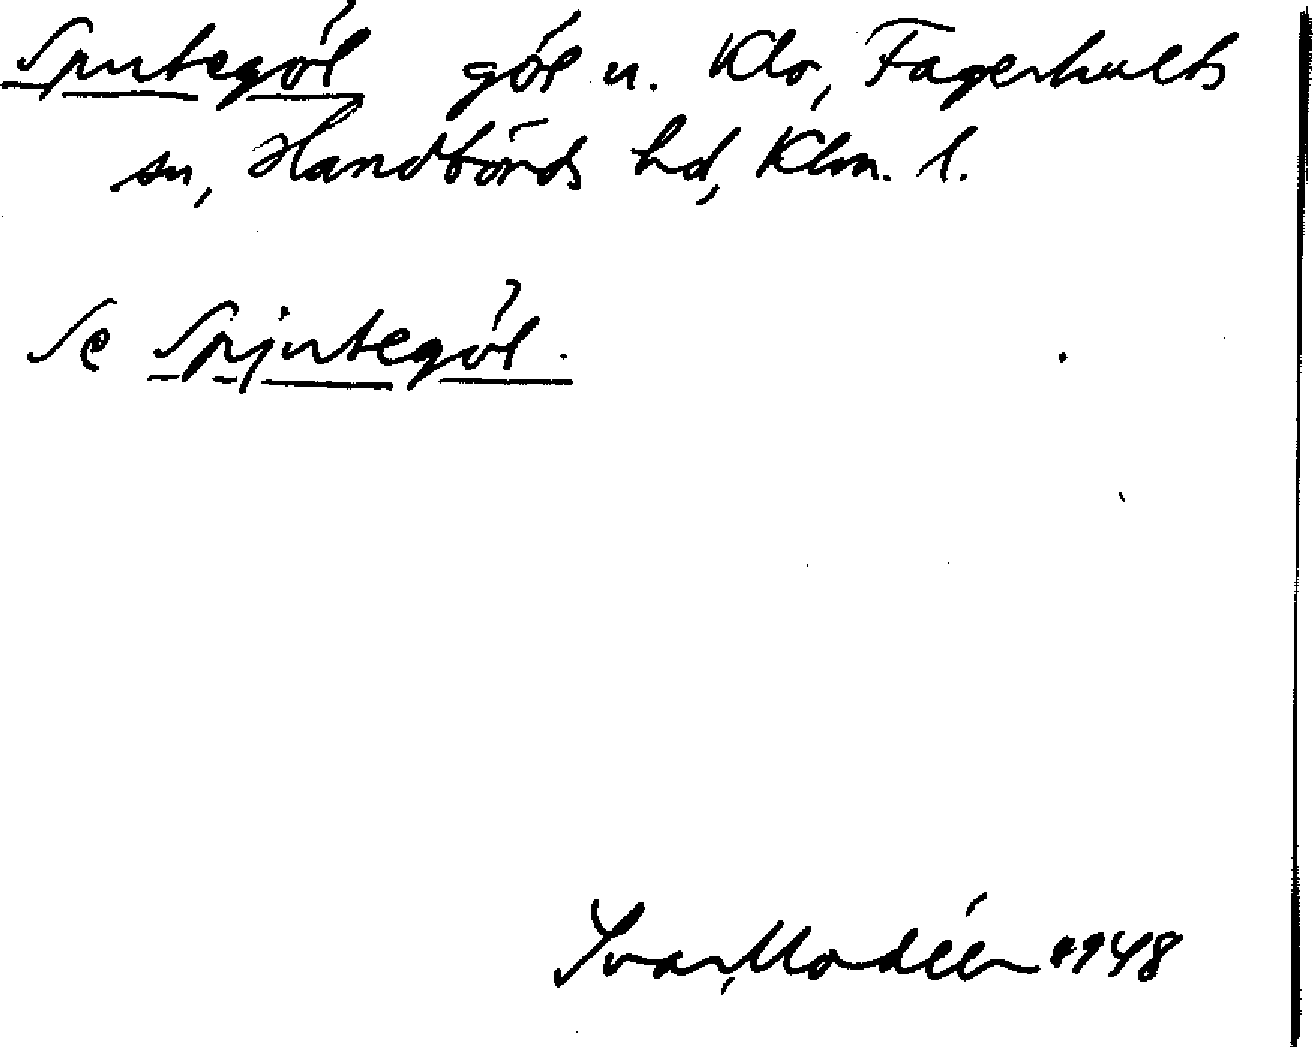 Sputegöl göl u. Klo, Fagerhults
sn, Handbörds hd, Klm. l.
Se Spjutegöl.
Ivar Modéer 1948